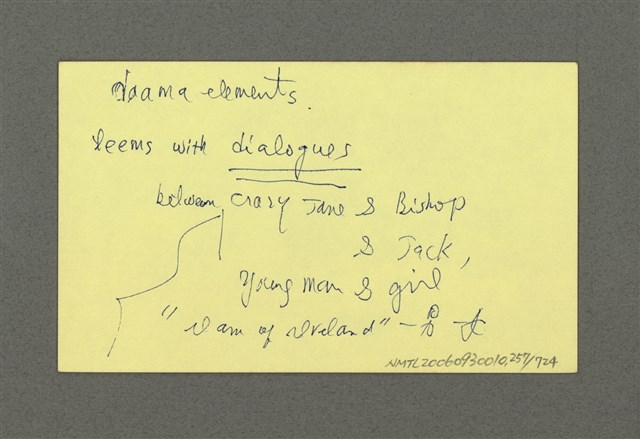 drama elements.
seems with dialogues
between Crazy Jane & Bishop
& Jack,
Young man & girl
"I am of Ireland" — 男 女
NMTL20060930010,257/724